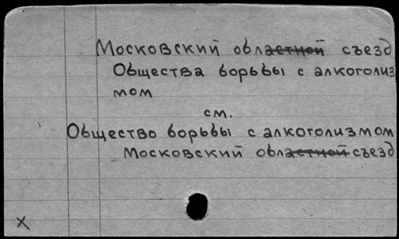 Московский областной съезд
Общества борьбы с алкоголиз
мом
см.
Общество борьбы с алкоголизмом
Московский областной съезд
x